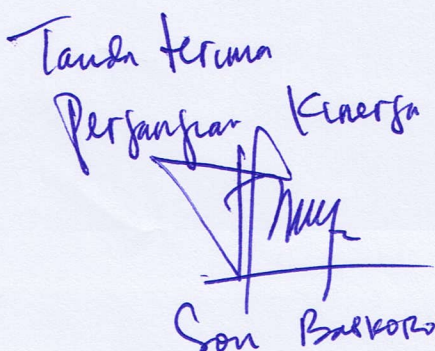 Tanda terima
Perjanjian Kinerja
Son Baskoro